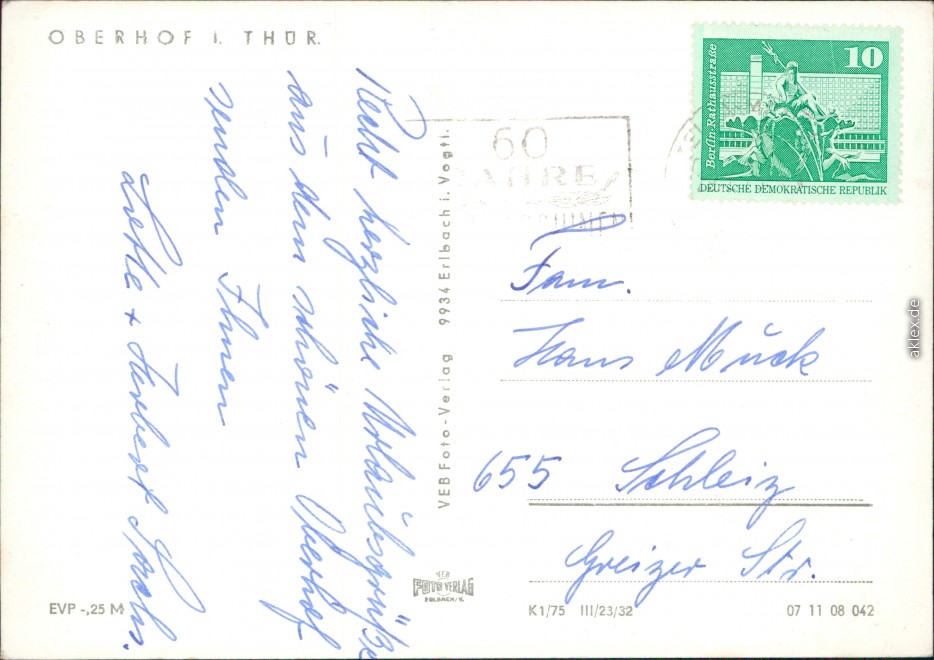 OBERHOF I. THÜR.
Recht herzliche Urlaubsgrüße
aus dem schönen Oberhof
senden Ihnen
Lotte + Herbert
VEB Foto-Verlag 9934 Erlbach i. Vogtl.
60
JAHRE
10
Berlin-Rathausstraße
DEUTSCHE DEMOKRATISCHE REPUBLIK
Fam.
Hans Mück
655 Schleiz
Greizer Str.
EVP -,25 M
VEB
FOTO VERLAG
ERLBACH/V.
K1/75 III/23/32 07 11 08 042
aklex.de